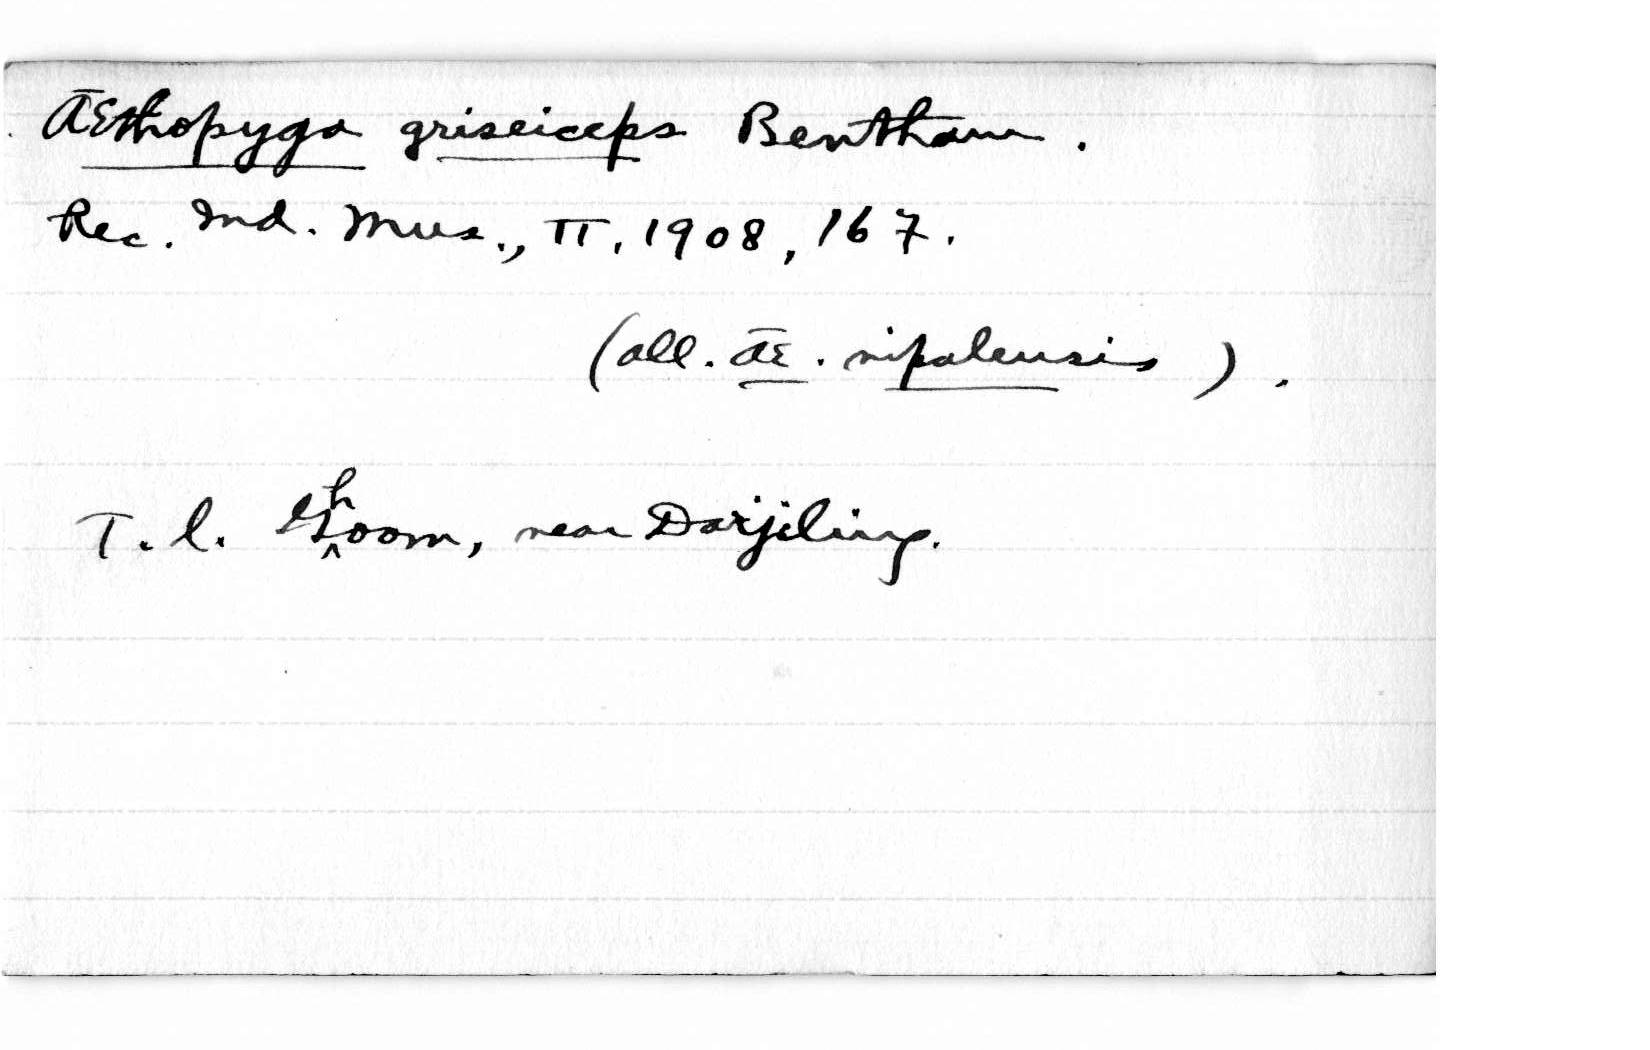 Æthopyga griseiceps Bentham.
Rec. Ind. Mus., II, 1908, 167.
(all. Æ. nipalensis).
T. l. Ghoom, near Darjiling.